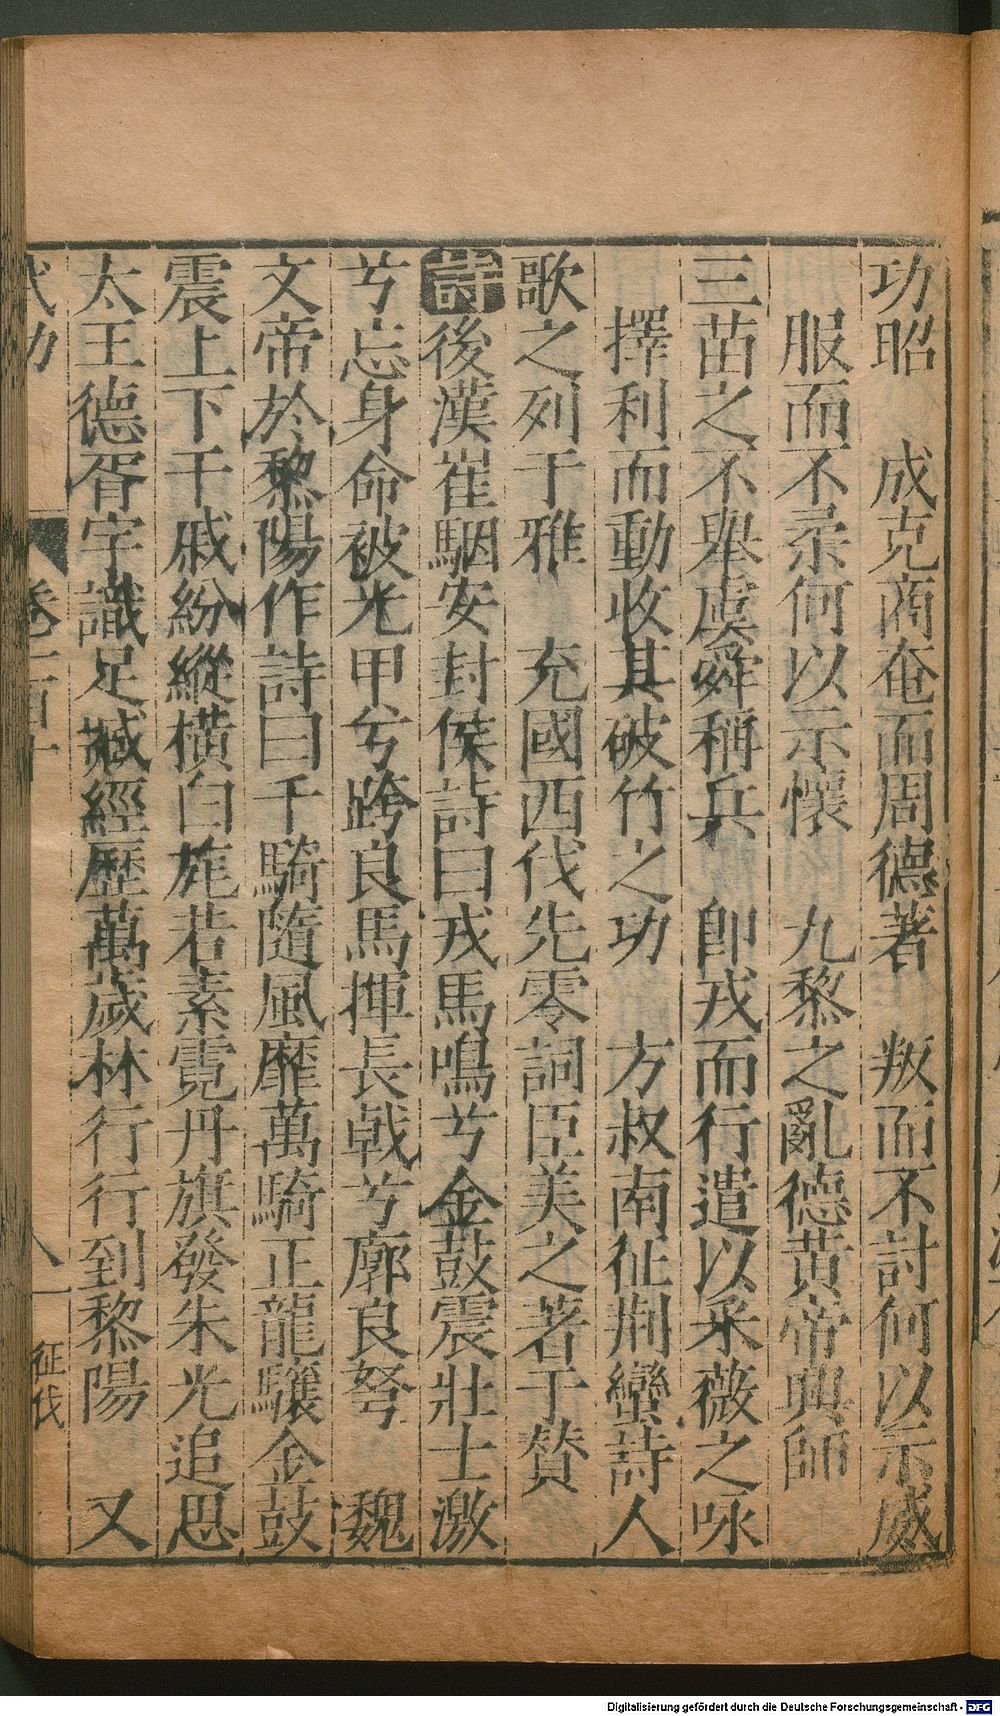 功昭 成克商奄而周德著 叛而不討何以示威
服而不柔何以示懷 九黎之亂德黃帝興師
三苗之不舉虞舜稱兵 卽戎而行遣以采薇之咏
擇利而動收其破竹之功 方叔南征荆蠻詩人
歌之列于雅 充國西伐先零詞臣美之著于贊
詩後漢崔駰安封侯詩曰戎馬鳴兮金鼓震壯士激
兮忘身命被光甲兮跨良馬揮長戟兮廓良弩 魏
文帝於黎陽作詩曰千騎隨風靡萬騎正龍驤金鼓
震上下干戚紛縱橫白旄若素霓丹旗發朱光追思
太王德胥宇識足臧經歷萬歲林行行到黎陽 又
征伐
Digitalisierung gefördert durch die Deutsche Forschungsgemeinschaft - DFG